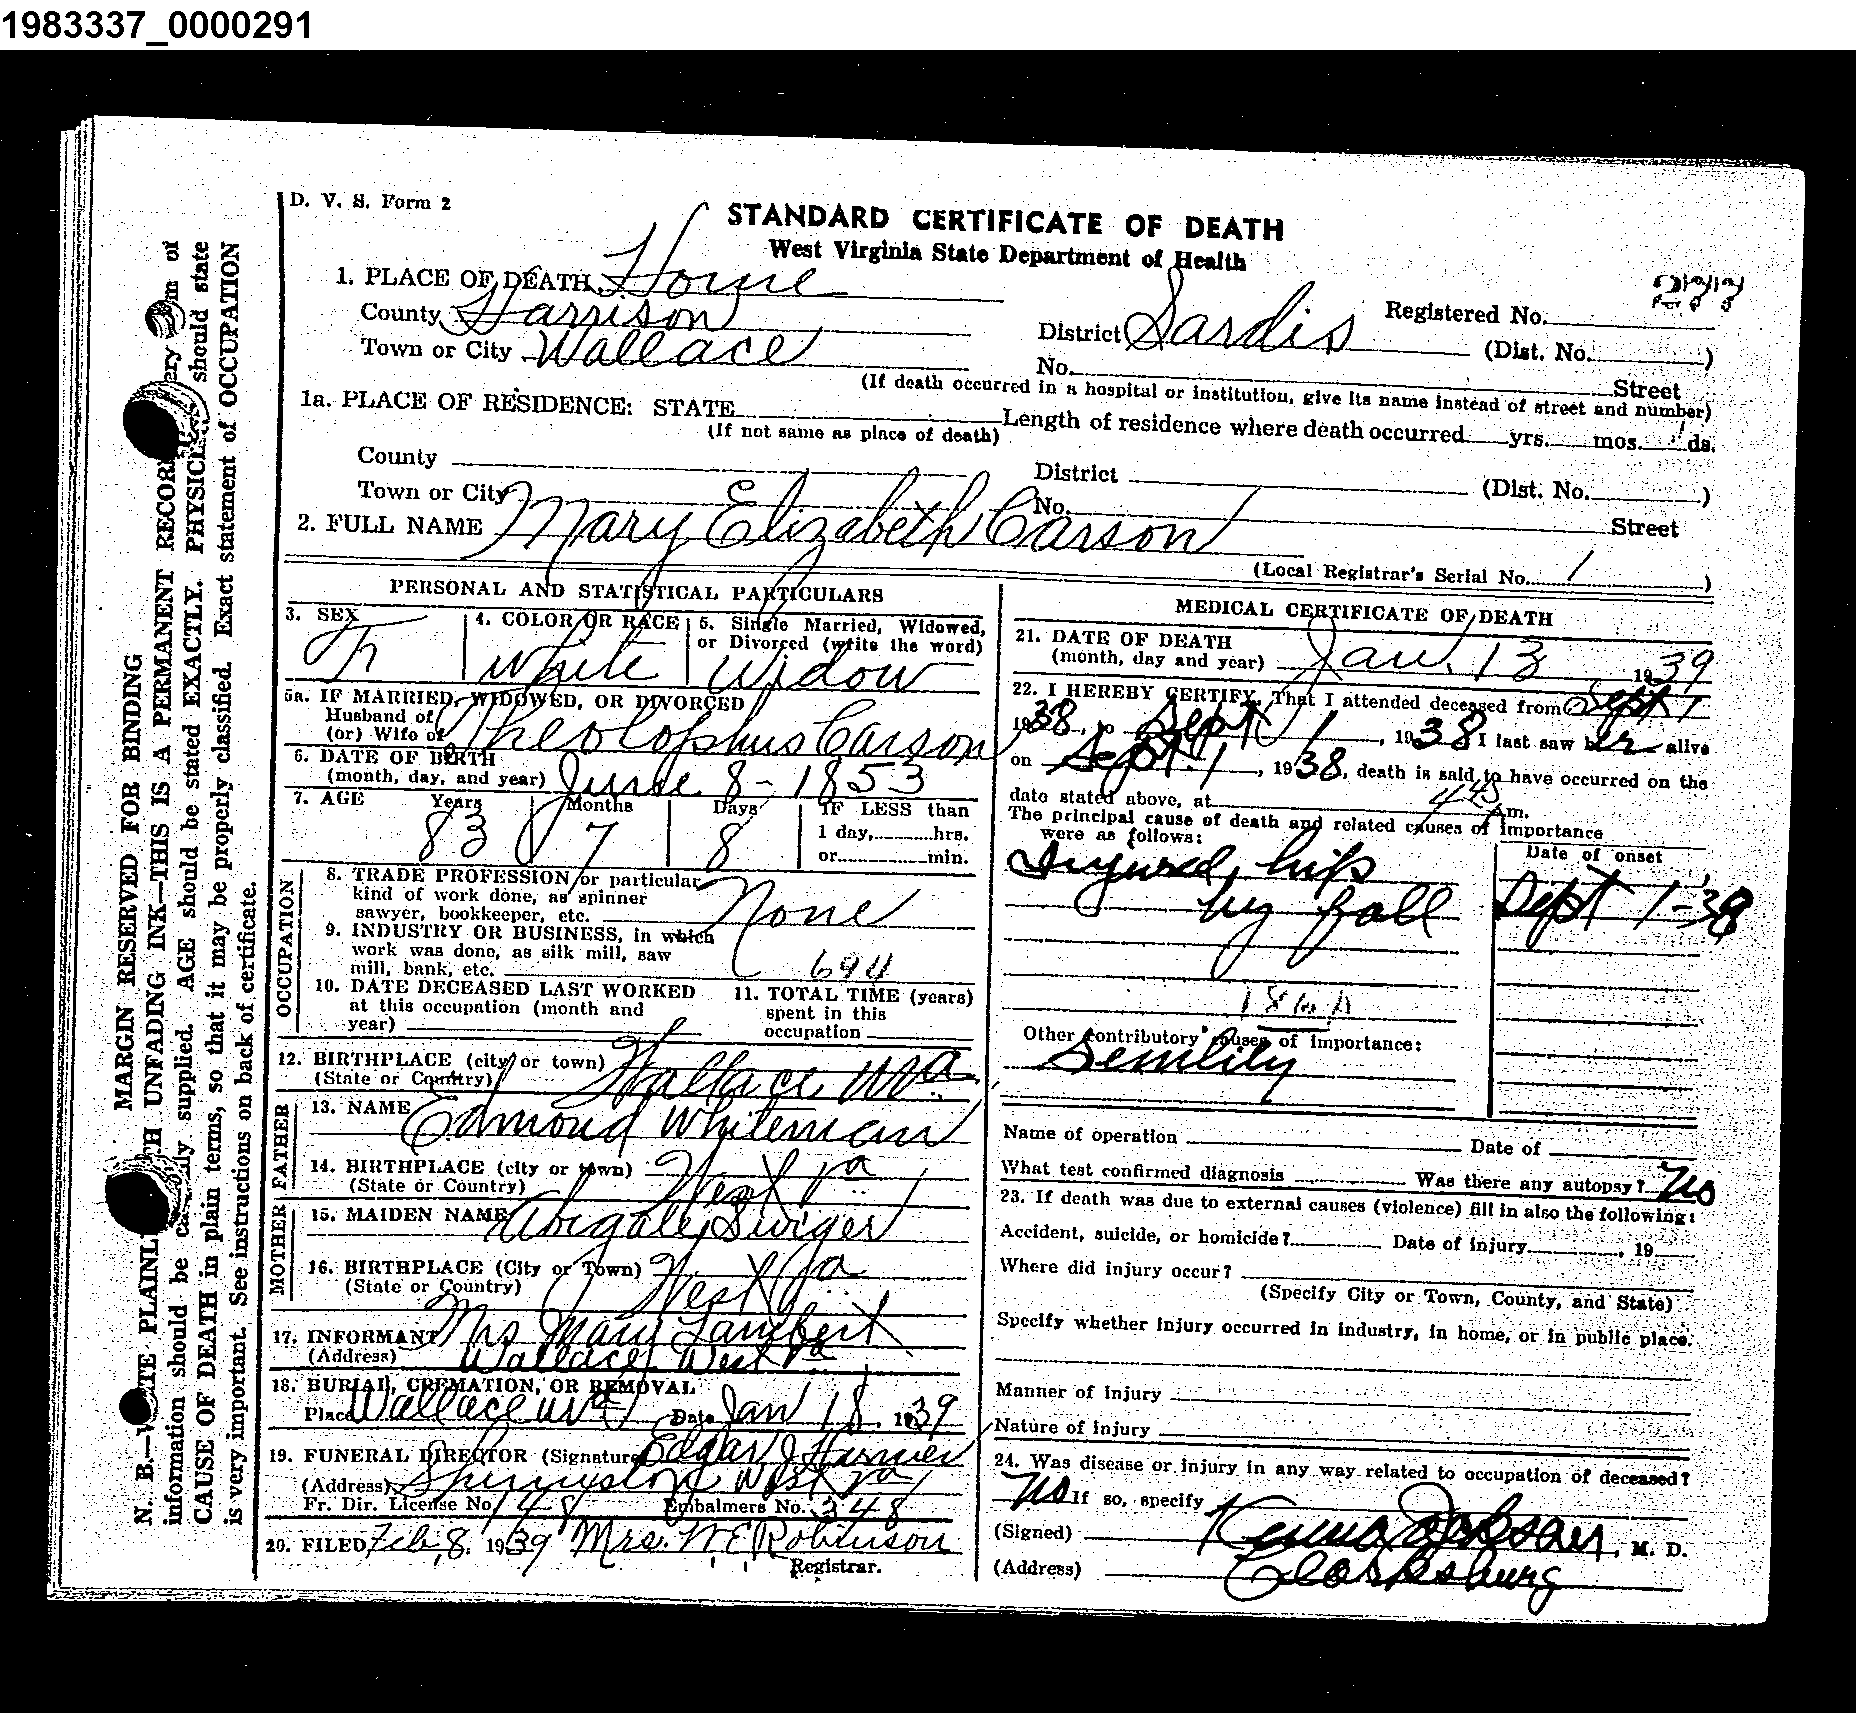 1983337_0000291
D. V. S. Form 2
STANDARD CERTIFICATE OF DEATH
West Virginia State Department of Health
1. PLACE OF DEATH Home
County Harrison
Town or City Wallace
District Sardis
Registered No.
(Dist. No. )
No. Street
(If death occurred in a hospital or institution, give its name instead of street and number)
1a. PLACE OF RESIDENCE: STATE
(If not same as place of death)
Length of residence where death occurred yrs. mos. ds.
County District
Town or City (Dist. No. )
No. Street
2. FULL NAME Mary Elizabeth Carson
(Local Registrar's Serial No. 1 )
PERSONAL AND STATISTICAL PARTICULARS
3. SEX F
4. COLOR OR RACE White
5. Single Married, Widowed,
or Divorced (write the word)
Widow
5a. IF MARRIED, WIDOWED, OR DIVORCED
Husband of
(or) Wife of Theolophus Carson
6. DATE OF BIRTH
(month, day, and year) June 8 - 1853
7. AGE Years Months Days IF LESS than
83 7 8 1 day, hrs.
or min.
OCCUPATION
8. TRADE PROFESSION or particular
kind of work done, as spinner
sawyer, bookkeeper, etc. None
9. INDUSTRY OR BUSINESS, in which
work was done, as silk mill, saw
mill, bank, etc. 694
10. DATE DECEASED LAST WORKED
at this occupation (month and
year)
11. TOTAL TIME (years)
spent in this
occupation
12. BIRTHPLACE (city or town)
(State or Country) Wallace WVa
FATHER
13. NAME Edmond Whiteman
14. BIRTHPLACE (city or town)
(State or Country) West Va
MOTHER
15. MAIDEN NAME Abigale Swiger
16. BIRTHPLACE (City or Town)
(State or Country) West Va
17. INFORMANT Mrs Mary Lambert
(Address) Wallace, West Va
18. BURIAL, CREMATION, OR REMOVAL
Place Wallace WVa Date Jan 18, 1939
19. FUNERAL DIRECTOR (Signature) Edgar J Harmer
(Address) Shinnston West Va
Fr. Dir. License No. 148 Embalmers No. 348
20. FILED Feb, 8, 1939 Mrs. W E Robinson
Registrar.
MEDICAL CERTIFICATE OF DEATH
21. DATE OF DEATH
(month, day and year) Jan. 13 1939
22. I HEREBY CERTIFY, That I attended deceased from Sept 1
1938, to Sept 1, 1938 I last saw her alive
on Sept. 1, 1938, death is said to have occurred on the
date stated above, at 445 A m.
The principal cause of death and related causes of importance
were as follows:
Date of onset
Injured, hip
by fall Sept 1-38
Other contributory causes of importance:
Senility
Name of operation Date of
What test confirmed diagnosis Was there any autopsy? No
23. If death was due to external causes (violence) fill in also the following:
Accident, suicide, or homicide? Date of injury , 19
Where did injury occur?
(Specify City or Town, County, and State)
Specify whether injury occurred in industry, in home, or in public place.
Manner of injury
Nature of injury
24. Was disease or injury in any way related to occupation of deceased?
No If so, specify
(Signed) , M. D.
(Address) Clarksburg
MARGIN RESERVED FOR BINDING
UNFADING INK—THIS IS A PERMANENT RECORD
supplied. AGE should be stated EXACTLY. PHYSICIANS should state
information should be
CAUSE OF DEATH in plain terms, so that it may be properly classified. Exact statement of OCCUPATION
is very important. See instructions on back of certificate.